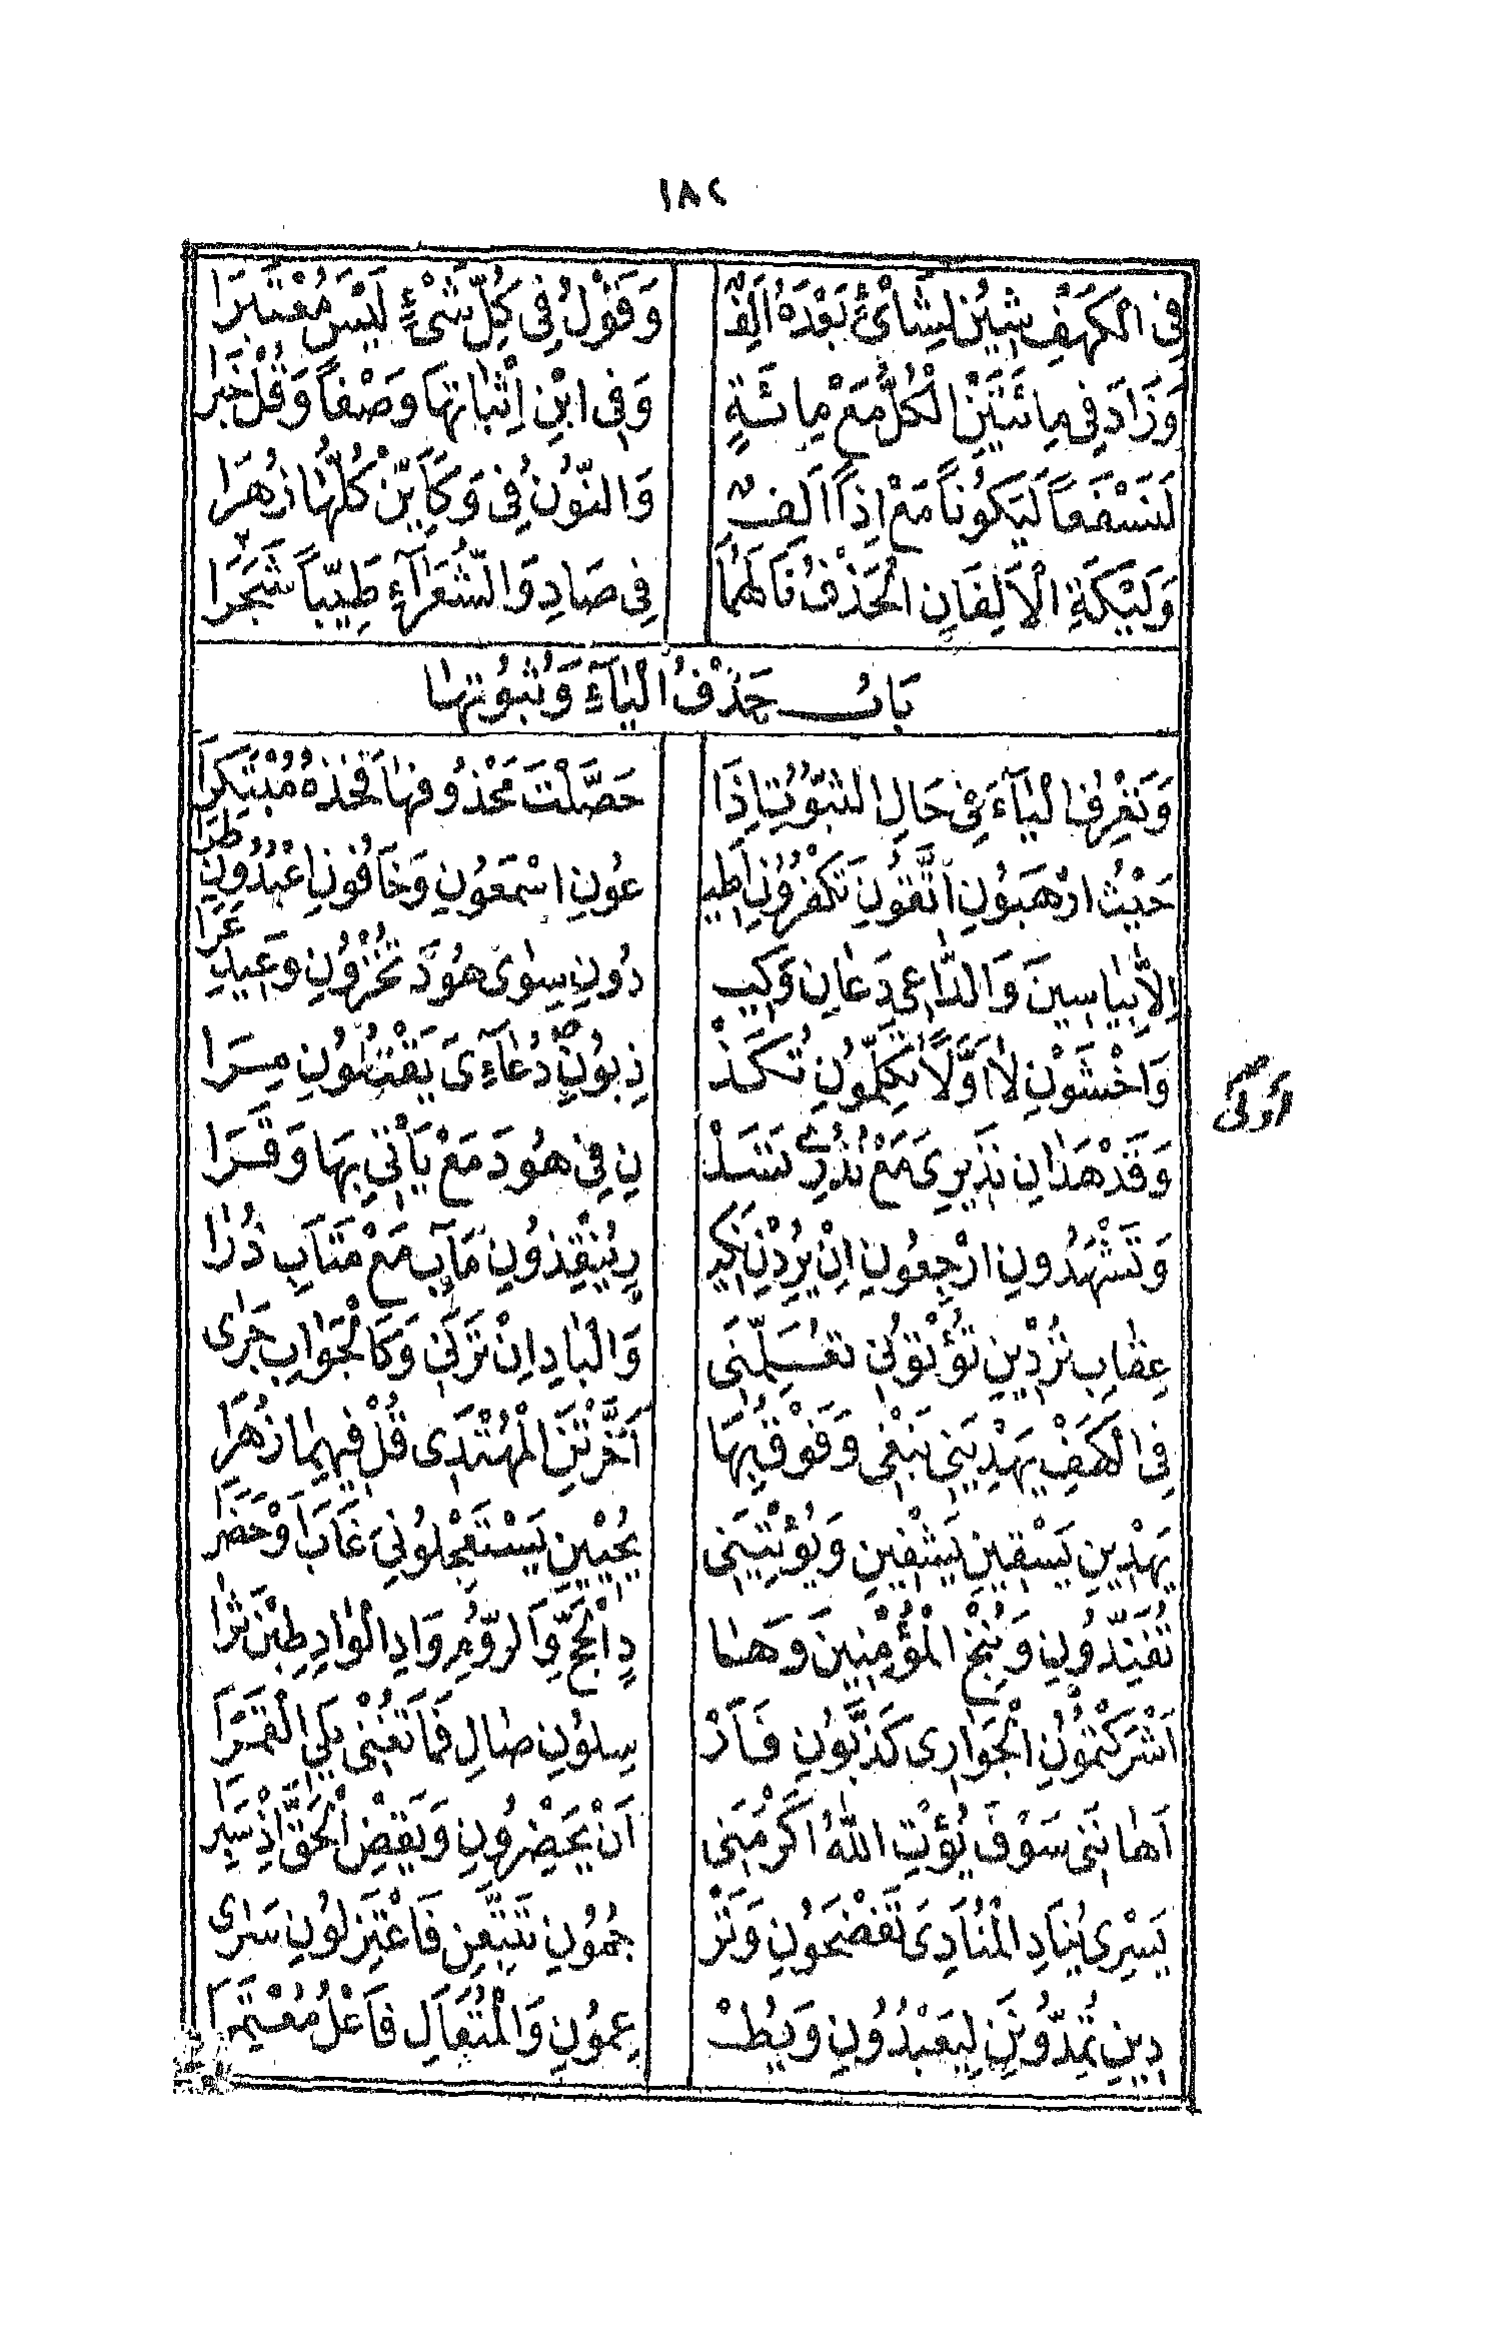 ١٨٢
فِى الْكَهْفِ شِيْنُ لِشَائْءٍ بَعْدَهُ اَلِفٌ وَقَوْلُ فِى كُلِّ شَىْءٍ لَيْسَ مُعْتَبَرَا
وَزَادَ فِى مِائَتَيْنِ الْكُلُّ مَعْ مِائَةٍ وَفِى ابْنٍ اِثْبَاتُهَا وَصْفاً وَقُلْ خَبَرَا
لَنَسْفَعاً لَيَكُوناً مَعْ اِذاً اَلِفٌ وَالنُّونُ فِى وَكَاَيِّنْ كُلُّهَا زُهَرَا
وَلَيْكَةِ الْاَلِفَانِ الْحَذْفُ نَالَهُمَا فِى صَادِ وَالشُّعَرَآءِ طَيِّباً شَجَرَا
بَابُ حَذْفُ الْيَآءِ وَثُبُوتِهَا
وَتَعْرِفُ الْيَآءَ فِى حَالِ الثُّبُوتِ اِذَا حَصَّلْتَ مَحْذُوفَهَا فَخُذْهُ مُبْتَكِرَا
حَيْثُ ارْهَبُونِ اتَّقُونِ تَكْفُرُونِ اَطِيـ ـعُونِ اسْمَعُونِ وَخَافُونِ اعْبُدُونِ طَرَا
اِلَّا بِيَاسِينَ وَالدَّاعِى دَعَانِ وَكِيـ ـدُونِ سِوٰى هُودَ تُخْزُونِ وَعِيدِ عَرَا
وَاخْشَوْنِ لَا اَوَّلاً تُكَلِّمُونِ يُكَذْ ذِبُونِ اُولٰى دُعَآءِى يَقْتُلُونِ مِرَا
وَقَدْ هَدَانِ نَذِيرِى مَعْ نُذُرِى تَسْئَلْ نِ فِى هُودَ مَعْ يَاْتِى بِهَا وَقَرَا
وَتَشْهَدُونِ ارْجِعُونِ اِنْ يُرِدْنِ نَكِيـ ـرِ يُنْقِذُونِ مَآبِ مَعْ مَتَابِ ذُرَا
عِقَابِ تُرْدِينِ تُؤْتُونِى تُعَلِّمَنِى وَالْبَادِ اِنْ تَرَنِى وَكَالْجَوَابِ جَرٰى
فِى الْكَهْفِ يَهْدِيَنِى نَبْغِى وَفَوْقُ بِهَا اَخَّرْتَنِ الْمُهْتَدِى قُلْ فِيهِمَا زُهَرَا
يَهْدِينِ يَسْقِينِ يَشْفِينِ وَيُؤْتِيَنِى يُحْيِينِ يَسْتَعْجِلُونِى غَابَ اَوْ حَضَرَا
تُفَنِّدُونِ وَنُنْجِ الْمُؤْمِنِينَ وَهَا دِ الْحَجِّ وَالرُّومِ وَادِ الْوَادِ طِبْنَ ثَرَا
اَشْرَكْتُمُونِ الْجَوَارِى كَذَّبُونِ فَاَرْ سِلُونِ صَالِ فَمَا تُغْنِى يَلِى الْقَمَرَا
اَهَانَنِى سَوْفَ يُؤْتِ اللّٰهُ اَكْرَمَنِى اَنْ يَحْضُرُونِ وَيَقْضِ الْحَقَّ اِذْ سَبَرَا
يَسْرِى يُنَادِ الْمُنَادِى تَفْضَحُونِ وَتَرْ جُمُونِ تَتَّبِعَنِ فَاعْتَزِلُونِ سَرٰى
دِينِ تُمِدُّونَنِ لِيَعْبُدُونِ وَيُطْـ ـعِمُونِ وَالْمُتَعَالِ فَاعْلُ مُعْتَمِرَا